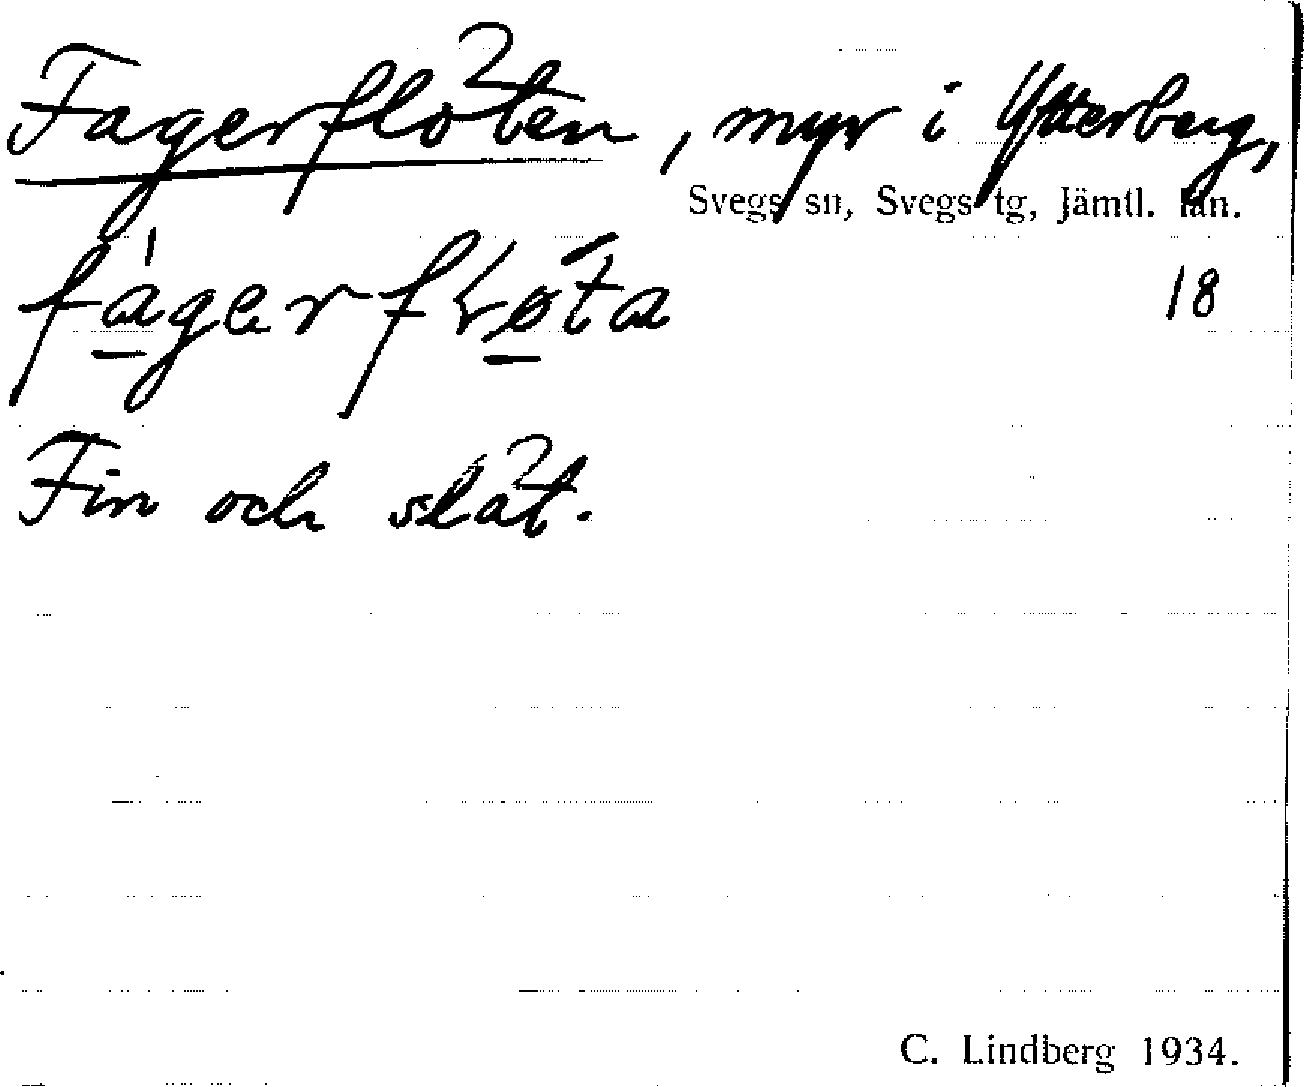 Fagerflöten, myr i Ytterberg,
Svegs sn, Svegs tg, Jämtl. län.
18
Fin och slät.
C. Lindberg 1934.